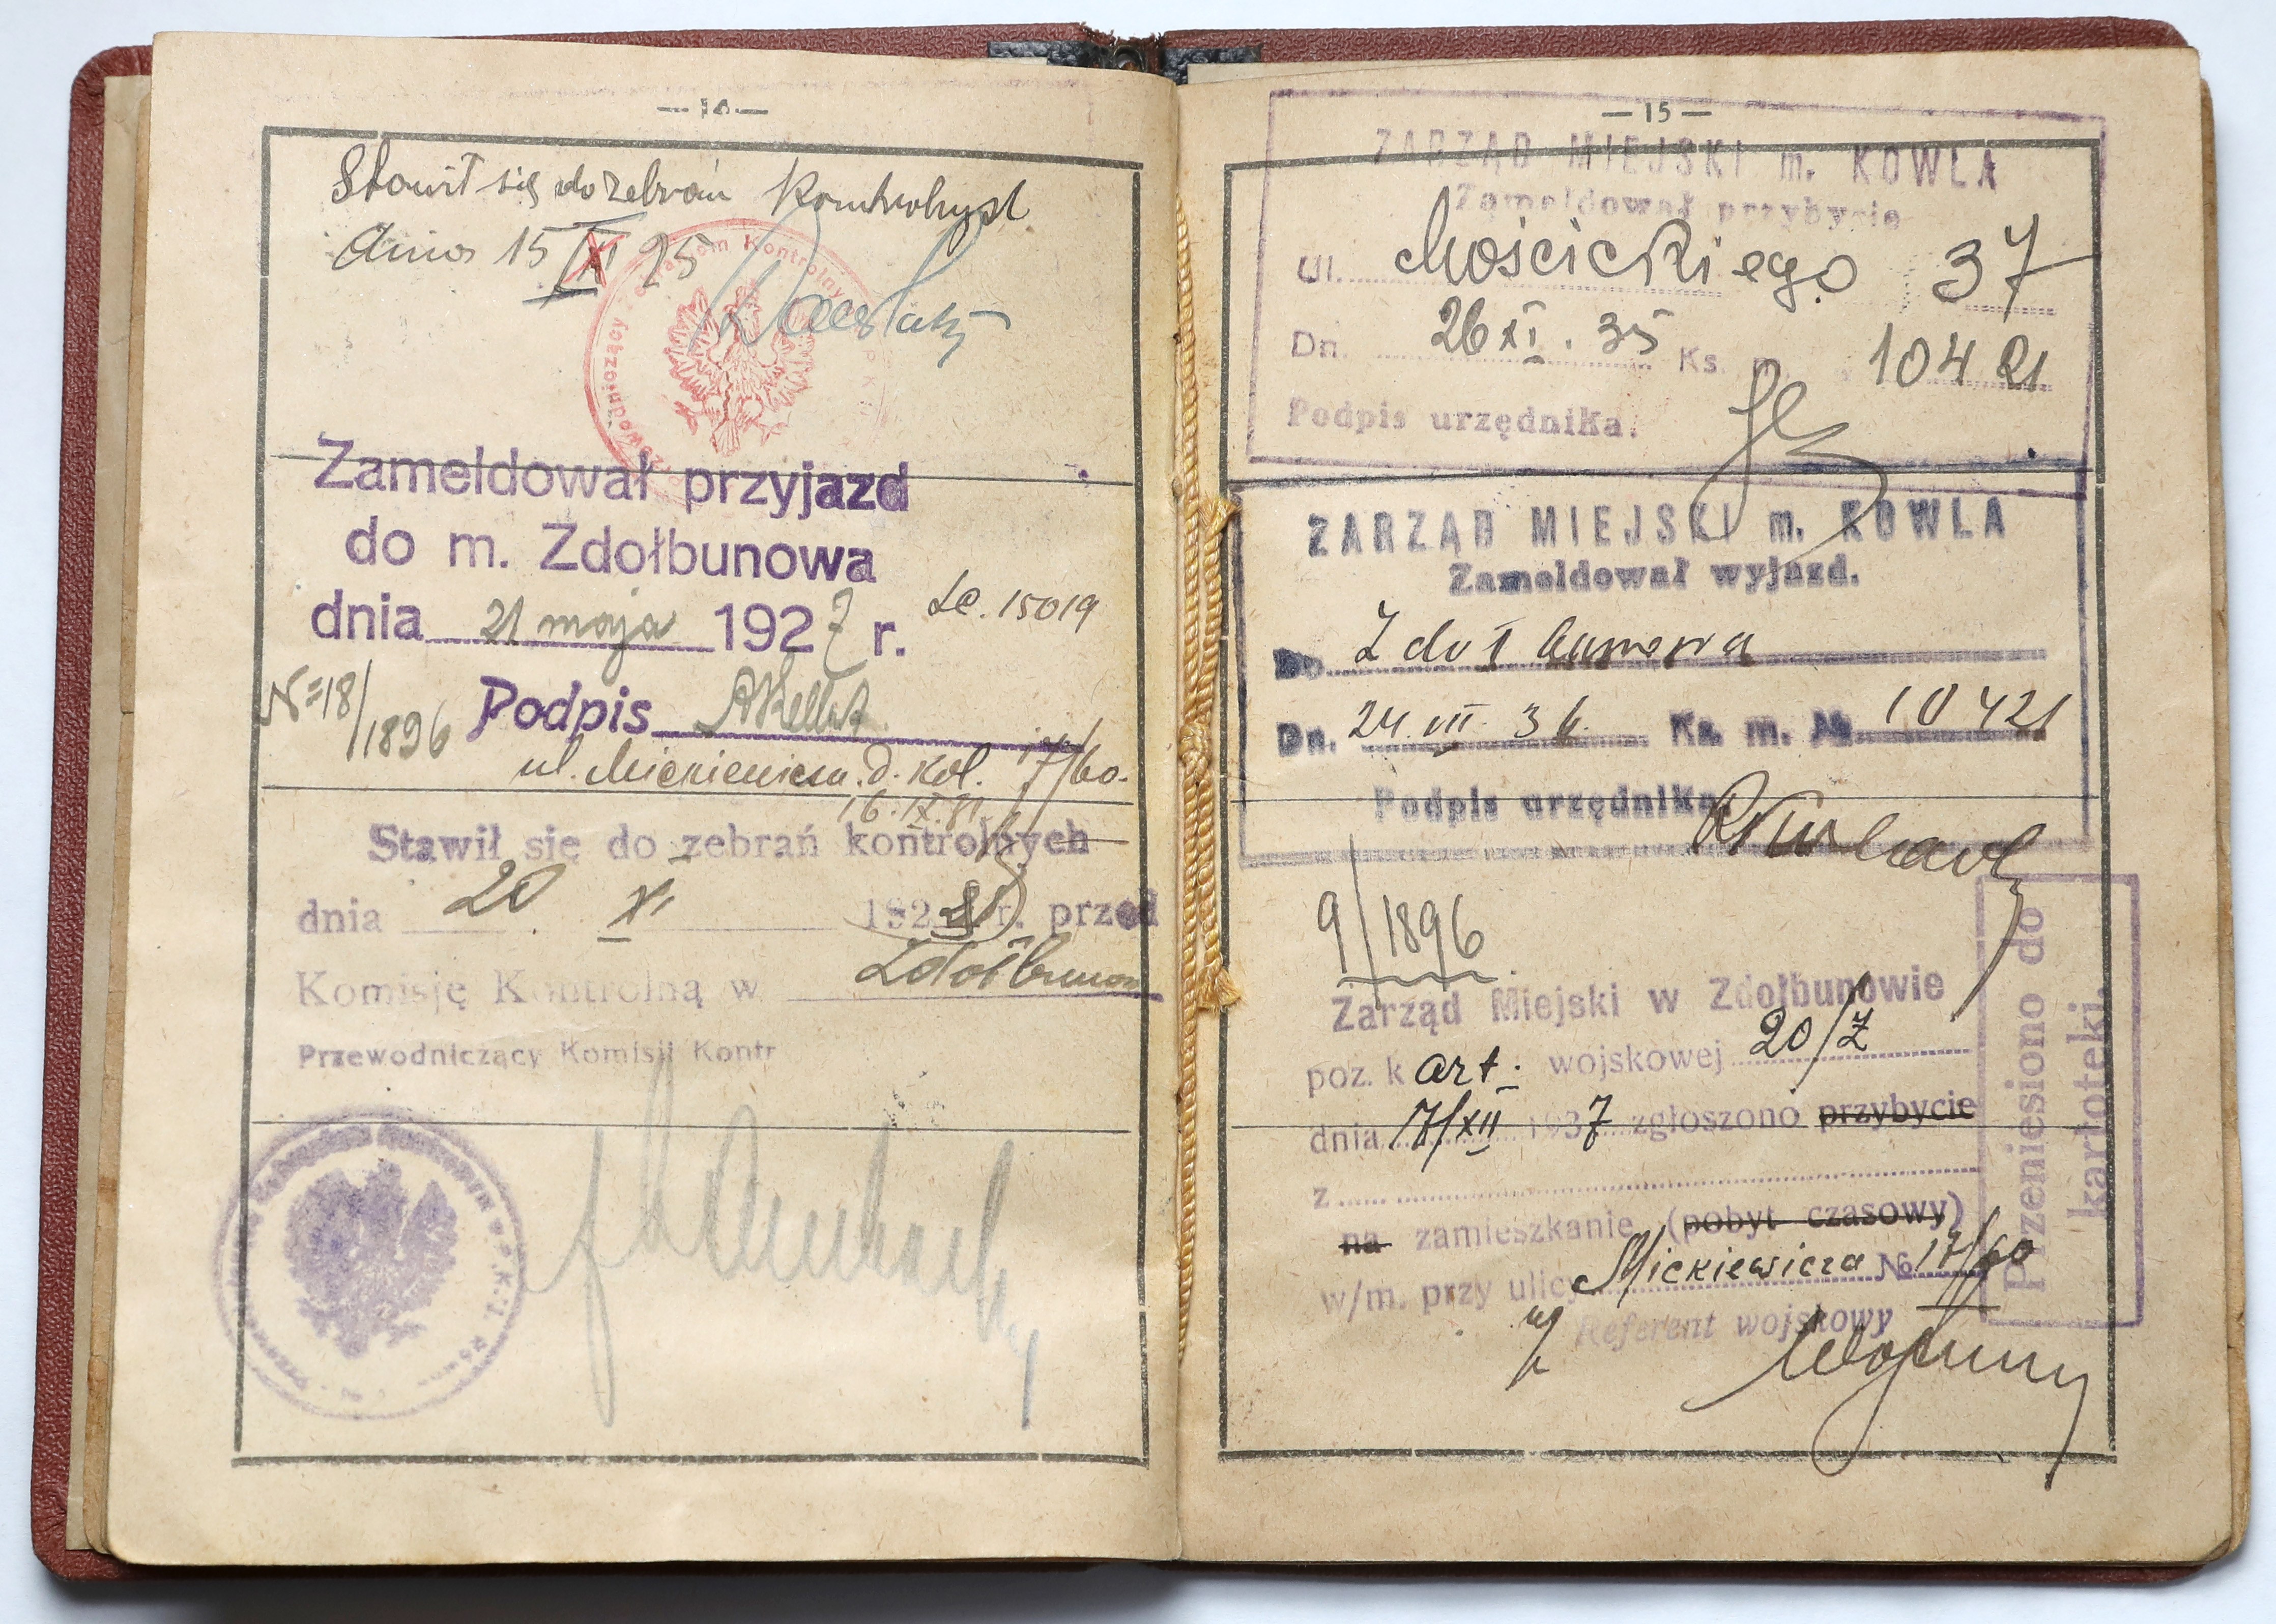 Stawił się do zebrań Kontrolnych
dnia 15 XI 25
Zameldował przyjazd
do m. Zdołbunowa
dnia 21 maja 1927 r. 15019
N=18/1896 Podpis
ul. Mickiewicza d. kol. 17/60.
16.IX.31
Stawił się do zebrań kontrolnych
dnia 20 XI 192 r. przed
Komisję Kontrolną w Zdołbunow
Przewodniczący Komisji Kontr
— 15 —
ZARZĄD MIEJSKI m. KOWLA
Zameldował przybycie
Ul. Mościckiego 37
Dn. 26 XI. 35 Ks. 10421
Podpis urzędnika.
ZARZĄD MIEJSKI m. KOWLA
Zameldował wyjazd.
Do Zdołbunowa
Dn. 24. VII. 36. Ks. m. № 10421
Podpis urzędnika
9/1896
Zarząd Miejski w Zdołbunowie
poz. kart. wojskowej 20/Z
dnia 7/XII 1937 zgłoszono przybycie
z
na zamieszkanie (pobyt czasowy)
w/m. przy ulicy Mickiewicza № 17/60
Referent wojskowy
Przeniesiono do
kartoteki.